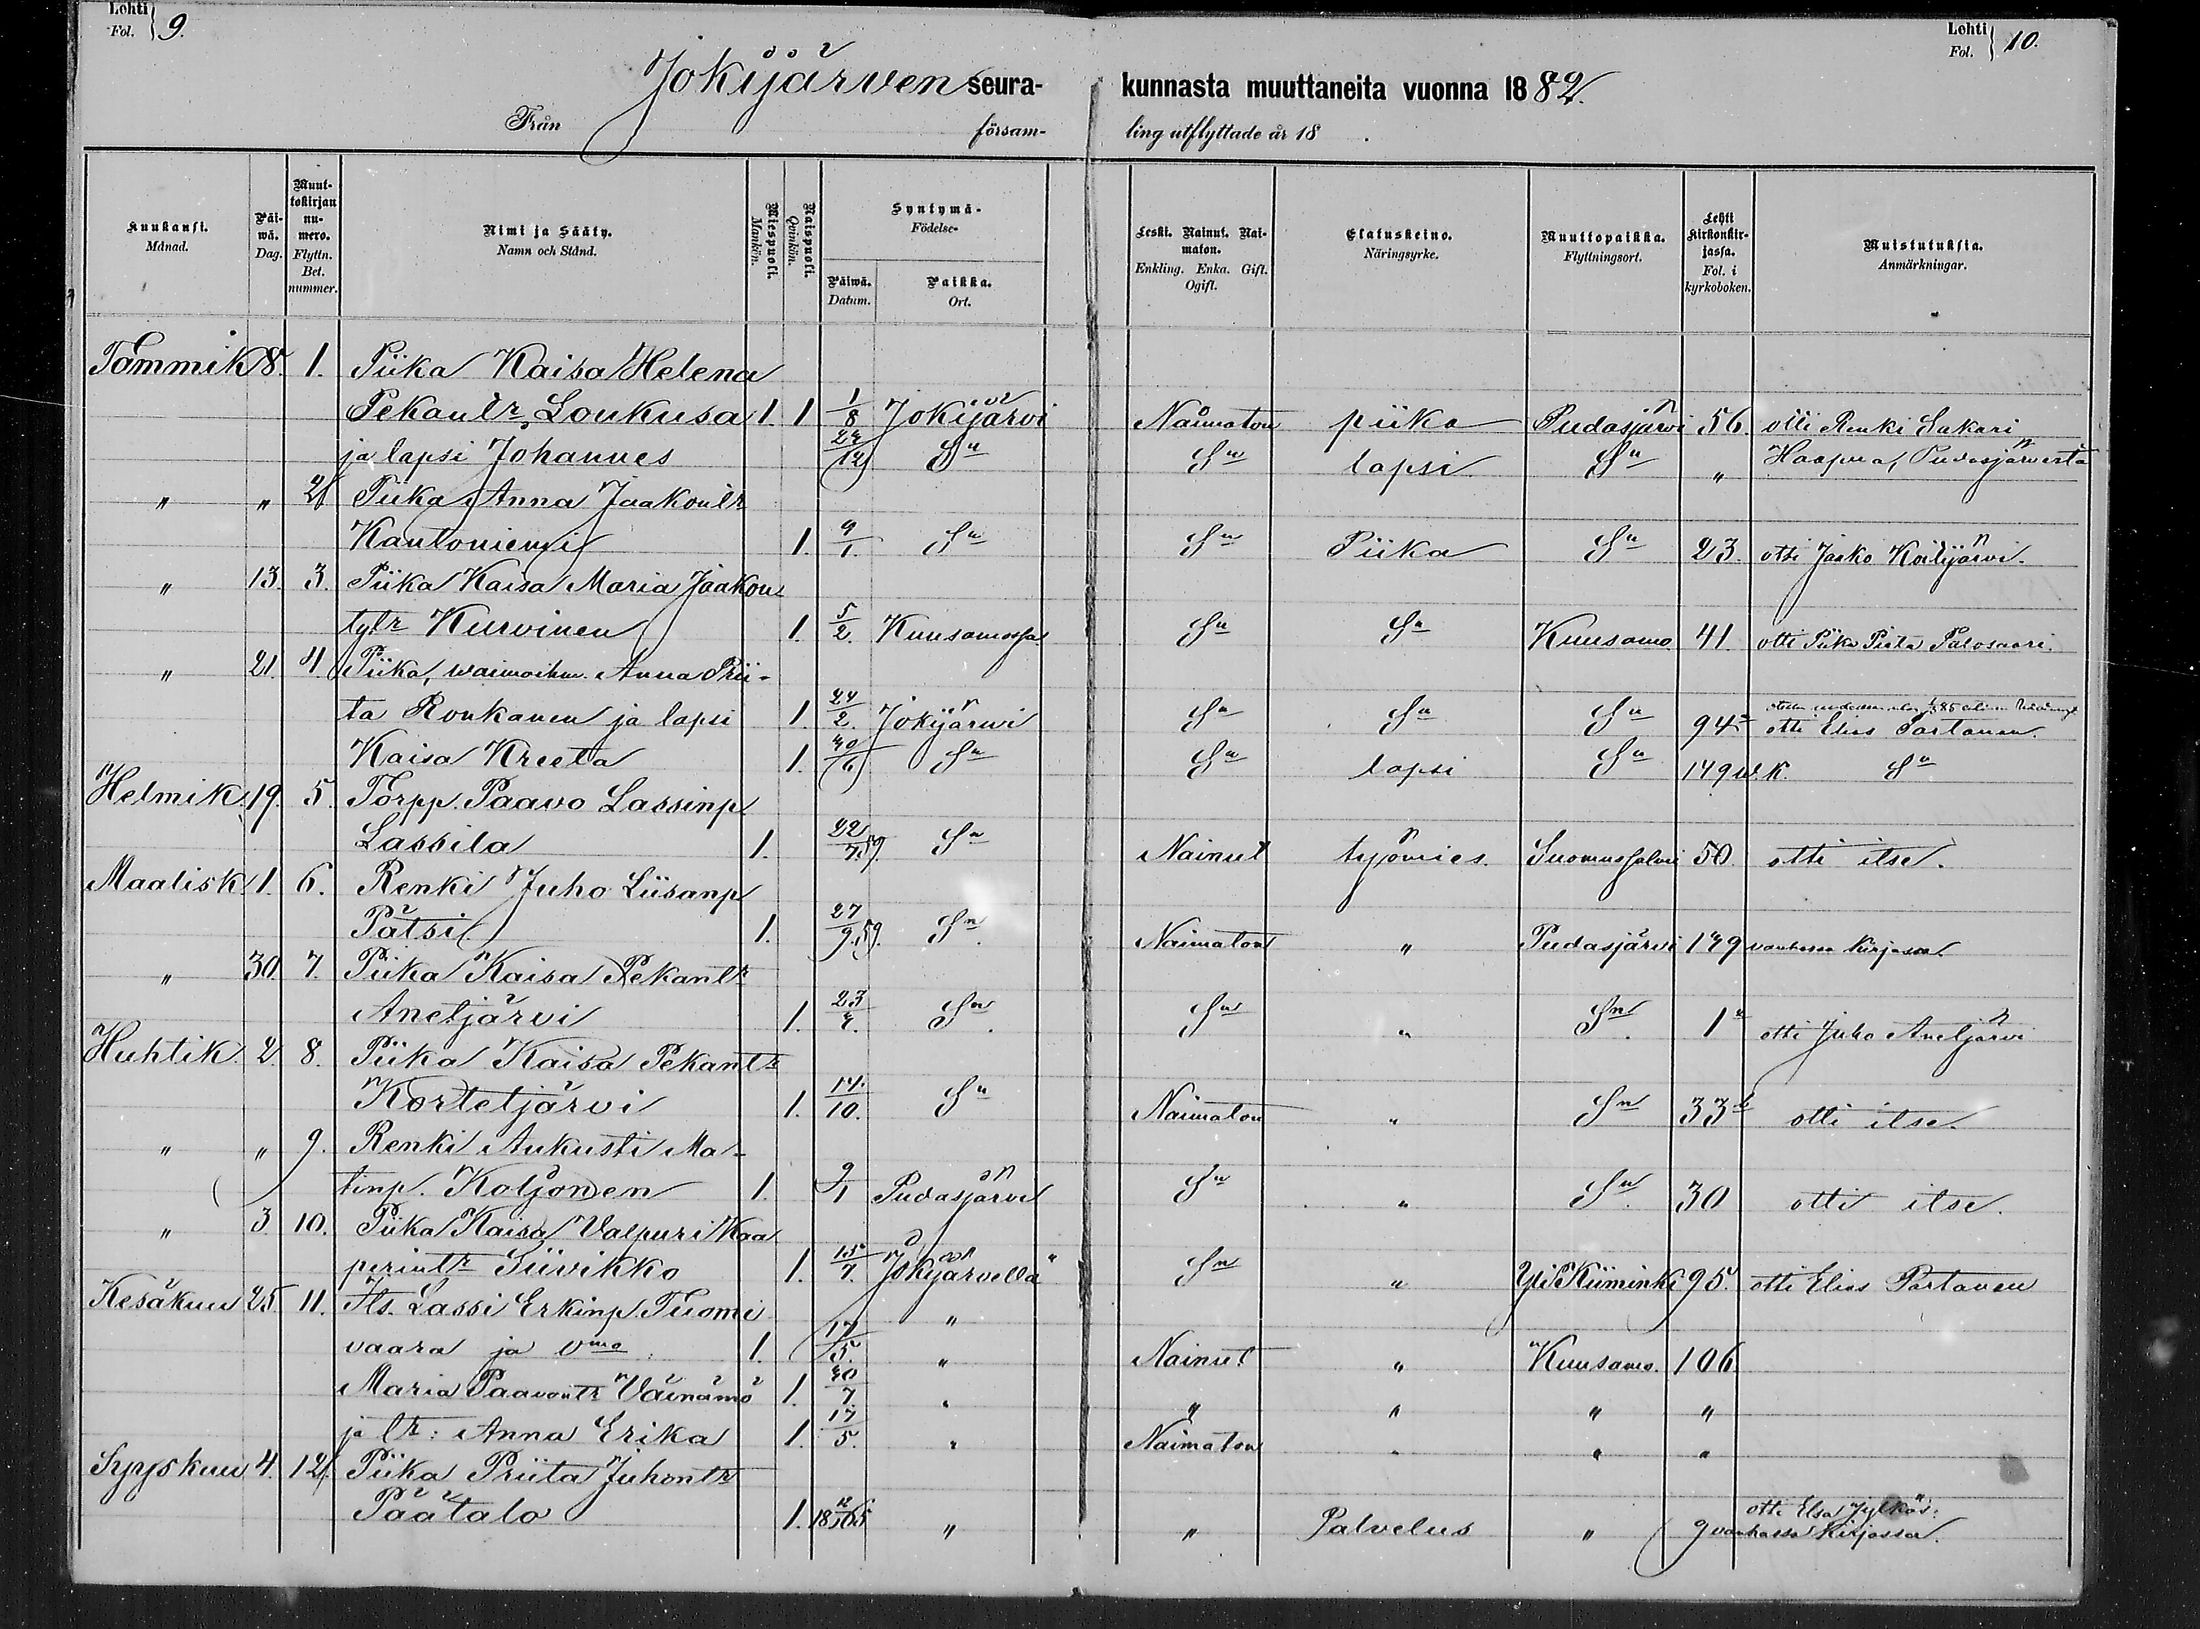 Lehti Fol. 9.
Lehti Fol. 10.
Jokijärven seura- kunnasta muuttaneita vuonna 1882.
Från försam- ling utflyttade år 18 .
Kuukausi. Månad. Päi-wä. Dag. Muut-tokirjan nu-mero. Flyttn. Bet. nummer. Nimi ja Sääty. Namn och Stånd. Miespuoli. Mankön. Naispuoli. Qvinkön. Syntymä- Födelse- Päiwä. Datum. Paikka. Ort. Leski. Nainut. Nai-maton. Enkling. Enka. Gift. Ogift. Elatuskeino. Näringsyrke. Muuttopaikka. Flyttningsort. Lehti kirkonkir-jassa. Fol. i kyrkoboken. Muistutuksia. Anmärkningar.
Tammik 8. 1. Piika Kaisa Helena
Pekantr Loukusa 1. 1 1/8 Jokijärvi Naimaton piika Pudasjärvi 56. otti Renki Sakari
ja lapsi Johannes Sn Sn lapsi Sn " Haapua, Pudasjärvestä
" " 2 Piika Anna Jaakontr
Kantoniemi 1. 9/1. Sn Sn Piika Sn 23. otti Jaako Koilijärvi.
" 13. 3. Piika Kaisa Maria Jaakon
tytr Kurvinen 1. 5/2. Kuusamossa Sn Sn Kuusamo 41. otti Piika Piita Palosaari.
" 21. 4 Piika, waimoihm. Anna Prii-
ta Ronkanen ja lapsi 1 24/2. Jokijärwi Sn Sn Sn 94 otti Elias Partanen.
Kaisa Kreeta 1. Sn Sn lapsi Sn 149 w.k. Sn
Helmik. 19. 5. Torpp. Paavo Lassinp
Lassila 1. 22/7.59. Sn Nainut työmies. Suomussalmi 50. otti itse.
Maalisk. 1. 6. Renki Juho Liisanp
Pätsi 1. 27/9.59. Sn. Naimaton " Pudasjärvi 149 vanhassa kirjassa
" 30. 7. Piika Kaisa Pekantr
Anetjärvi 1. 23/ Sn. Sn " Sn. 1 otti Juho Anetjärvi
Huhtik. 2. 8. Piika Kaisa Pekantr
Kortetjärvi 1. 14./10. Sn Naimaton " Sn 33 otti itse.
" " 9. Renki Aukusti Ma-
tinp. Koljonen 1. 9/1 Pudasjärvi Sn " Sn. 30 otti itse.
" 3. 10. Piika Kaisa Valpuri Kaa
perintr Siivikko 1. 15/7. Jokijärvellä Sn " Yli Kiiminki 95. otti Elias Partanen
Kesäkuu 25 11. Its. Lassi Erkinp. Tuomi "
vaara ja vmo. 1. 17/5. " Nainut " Kuusamo. 106
Maria Paavontr Väinämö 1. /7. " " " " "
ja tr: Anna Erika 1. 17/5. " Naimaton " " "
Syyskuu 4. 12. Piika Priita Juhontr
Päätalo 1. " " Palvelus " 9 vanhassa Kirjassa.
otti Elsa Jylkäs: